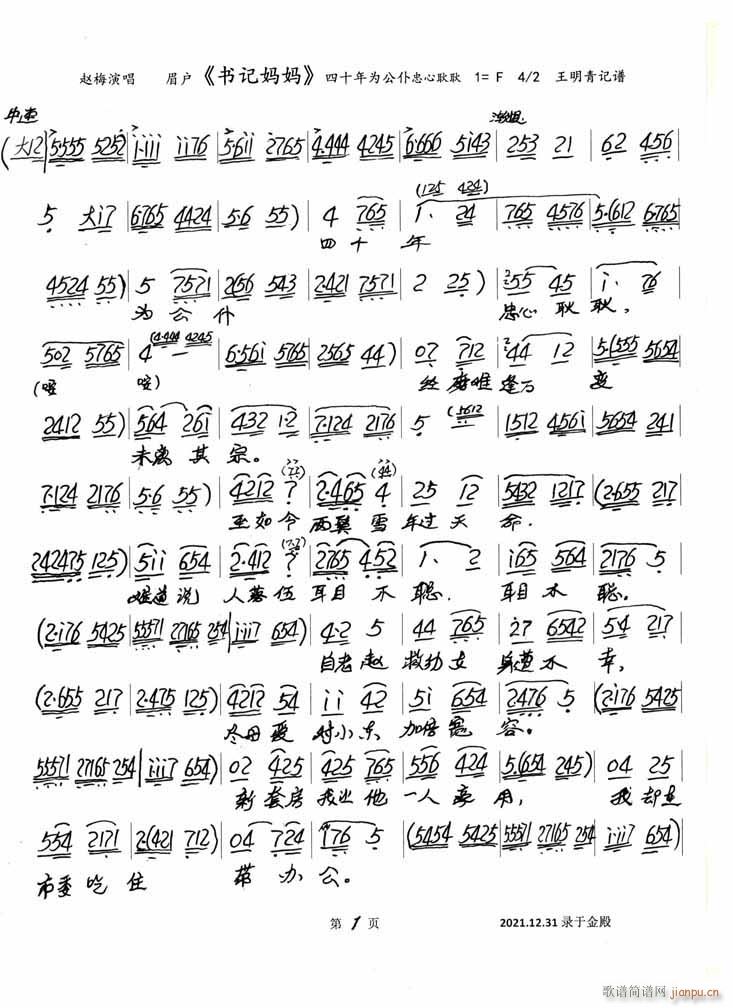 赵梅演唱 眉户《书记妈妈》四十年为公仆忠心耿耿 1= F 4/2 王明青记谱
中速
(大12 | 5555 5252 | 1·111 1176 | 5·611 2765 | 4·444 4245 | 6·666 5143 | 253 21 | 62 456 |
5 大17 | 6765 4424 | 5·6 55) | 4 765 | 1· 24 | 765 4576 | 5·(612 6·765 |
四 十 年
4524 55) | 5 7571 | 2(56 543 | 2·421 7571 | 2 25) | 55 45 | 1· 76 |
为 公 仆 忠心 耿 耿,
502 5765 | 4 — | 6·561 5765 | 2565 44) | 07 712 | 44 12 | 5·(555 5654 |
经 磨难 逢万 变
2412 55) | 564 261 | 432 12 | 7·124 2176 | 5 (5612 | 1512 4561 | 5654 241 |
未离 其 宗。
7·124 2176 | 5·6 55) | 4212 7 | 2·465 4 | 25 12 | 5432 1217 | (2·655 217 |
至如今 两鬓 雪 年过 天 命.
242475 125) | 511 654 | 2·412 7 | 2765 452 | 1· 2 | 165 564 | 2176 5 |
难道说 人落伍 耳目 不 聪. 耳目 不 聪。
(2·176 5425 | 55571 27165 254 | 1·117 654) | 4·2 5 | 44 765 | 27 6542 | 54 217 |
自老赵 救幼女 身遭 不 幸,
(2·655 217 | 2·475 125) | 4212 54 | 11 42 | 51 654 | 2476 5 | (2·176 5425 |
对小东 加倍 宽 容。
55571 27165 254 | 1·117 654) | 02 425 | 425 765 | 556 424 | 5·(654 245) | 04 25 |
新套房 我让 他 一人 豪 用, 我却连
554 2171 | 2(421 712) | 04 724 | 176 5 | (5454 5425 | 55571 27165 254 | 1·117 654) |
市委 吃 住 带 办 公。
第 1 页 2021.12.31 录于金殿
歌谱简谱网
jianpu.cn